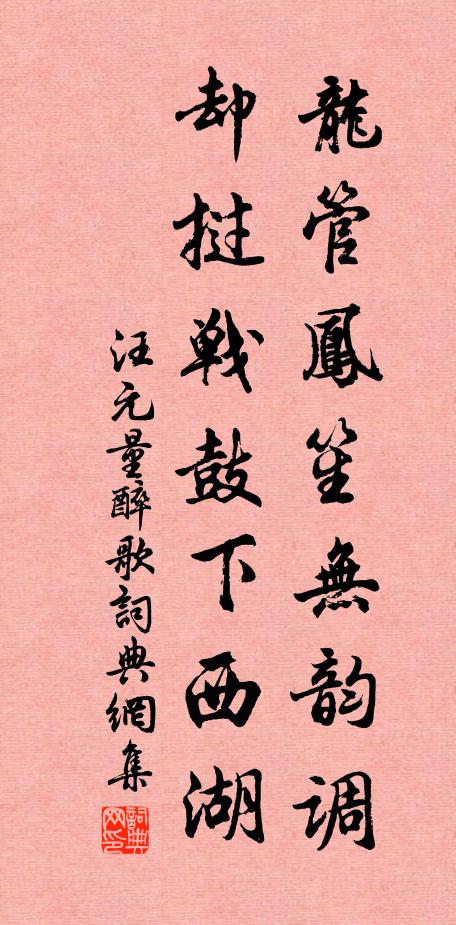 龍管鳳笙無韵调
却撻戦鼓下西湖
汪元量醉歌詞典網集
詞典网印